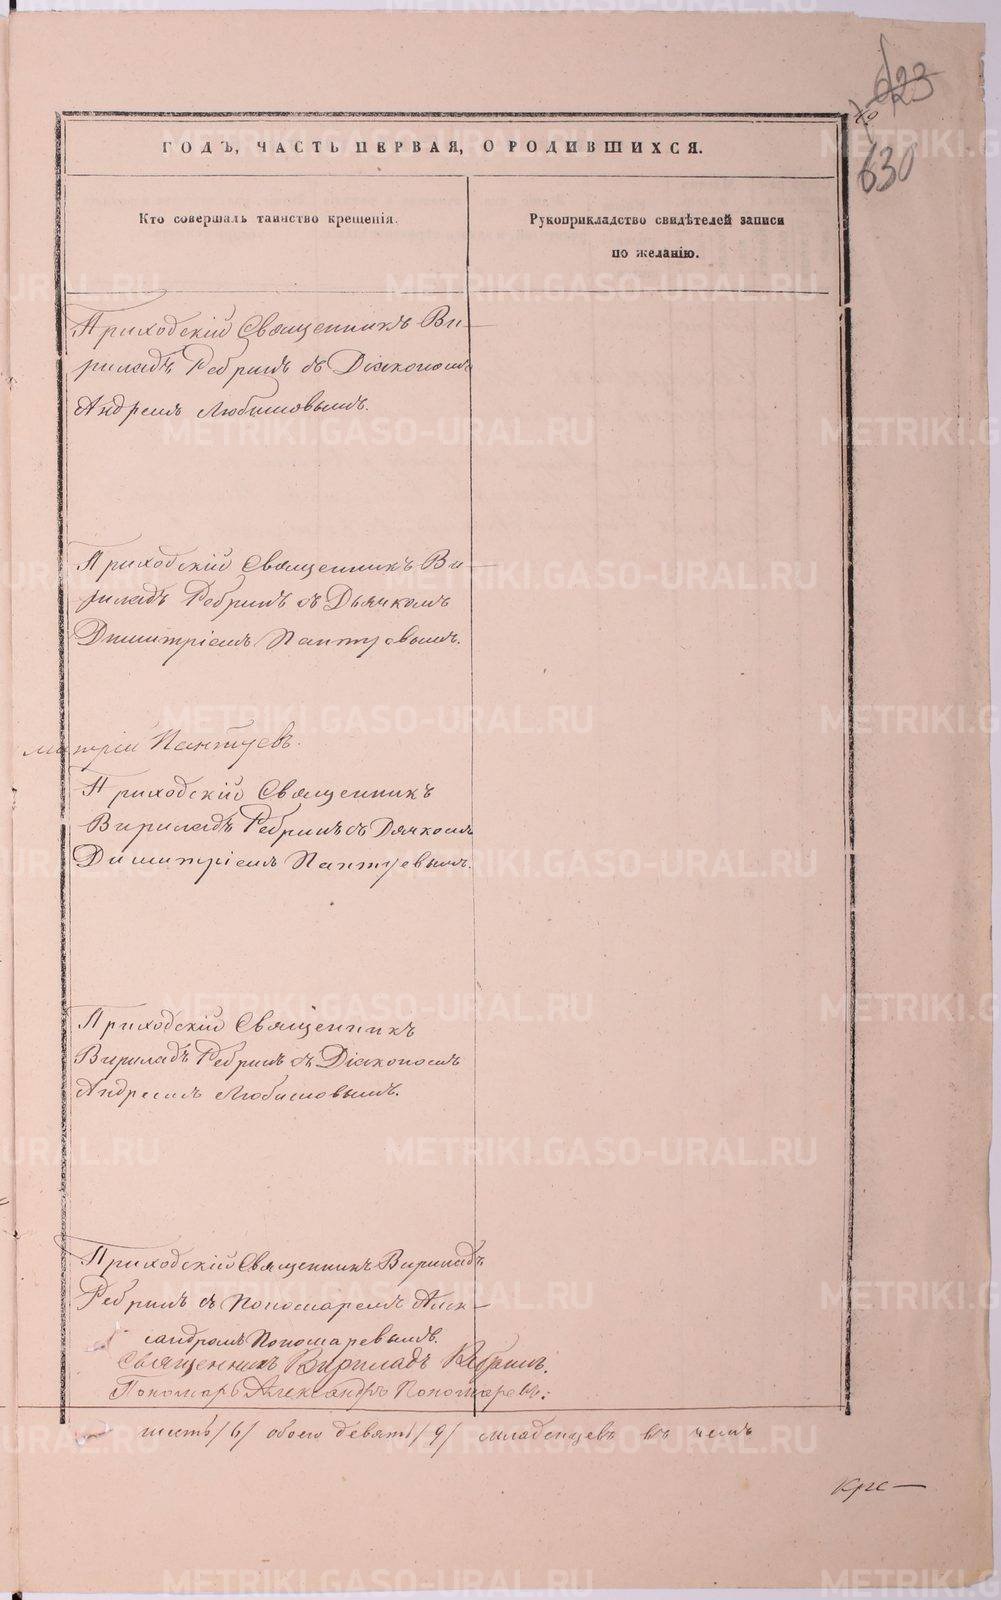 623
630
ГОДЪ, ЧАСТЬ ПЕРВАЯ, О РОДИВШИХСЯ.
Кто совершалъ таинство крещенія.
Рукоприкладство свидѣтелей записи
по желанію.
Приходскій Священникъ Ви-
риладъ Ребринъ съ Діакономъ
Андреемъ Любимовымъ.
Приходскій Священникъ Ви-
риладъ Ребринъ съ Дьячкомъ
Димитріемъ Пантуевымъ.
митрій Пантуевъ.
Приходскій Священникъ
Вириладъ Ребринъ съ Дячкомъ
Димитріемъ Пантуевымъ.
Приходскій Священникъ
Вириладъ Ребринъ съ Діакономъ
Андреемъ Любимовымъ.
Приходскій Священникъ Вириладъ
Ребринъ съ Пономаремъ Алек-
сандромъ Пономаревымъ.
Священникъ Вириладъ Ребринъ.
Пономарь Александръ Пономаревъ.
шесть /6/ обоего девять /9/ младенцевъ въ чемъ
METRIKI.GASO-URAL.RU